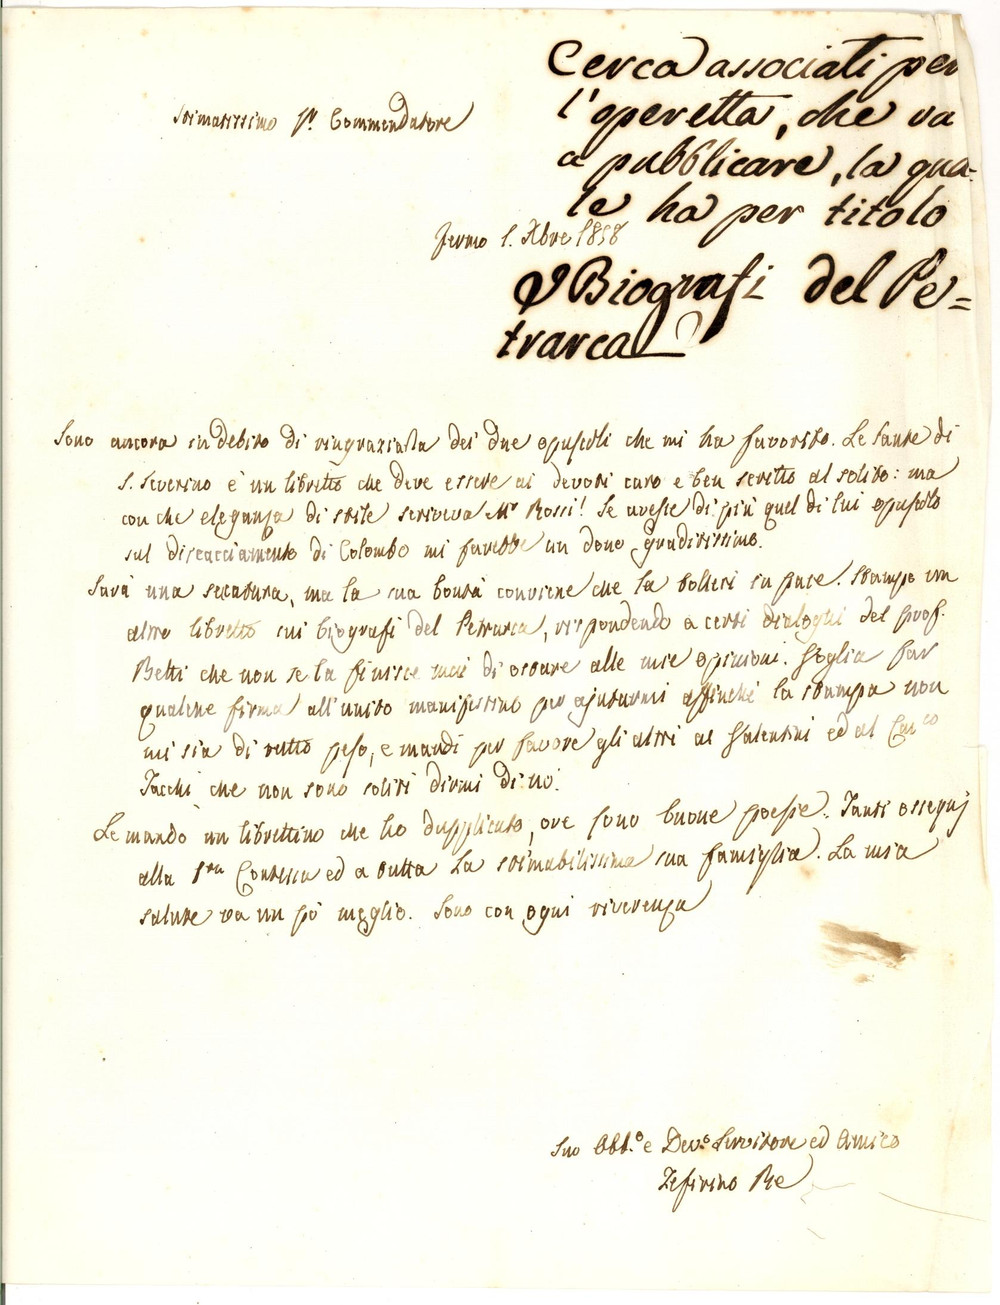 Cerca associati per
l'operetta, che va
a pubblicare, la qua-
le ha per titolo
I Biografi del Pe=
trarca
Stimatissimo Sr. Commendatore
Fermo 1. Xbre 1858
Sono ancora in debito di ringraziarla dei due opuscoli che mi ha favorito. Le sante di
S. Severino è un libretto che deve essere ai devoti caro e ben scritto al solito: ma
con che eleganza di stile scriveva Mr Rossi! Se avesse di più quel di lui opuscolo
sul discacciamento di Colombo mi farebbe un dono graditissimo.
Sarà una seccatura, ma la sua bontà conviene che la tolleri in pace. Stampo un
altro libretto sui biografi del Petrarca, rispondendo a certi dialoghi del prof.
Betti che non se la finisce mai di ostare alle mie opinioni. Voglia far
qualche firma all'unito manifestino per ajutarmi affinché la stampa non
mi sia di tutto peso, e mandi per favore gli altri al Valentini ed al Can.co
Tacchi che non sono soliti dirmi di no.
Le mando un librettino che ho dupplicato, ove sono buone poesie. Tanti ossequj
alla Sra Contessa ed a tutta la stimabilissima sua famiglia. La mia
salute va un pò meglio. Sono con ogni riverenza
Suo Obb.o e Dev.o Servitore ed Amico
Zefirino Re